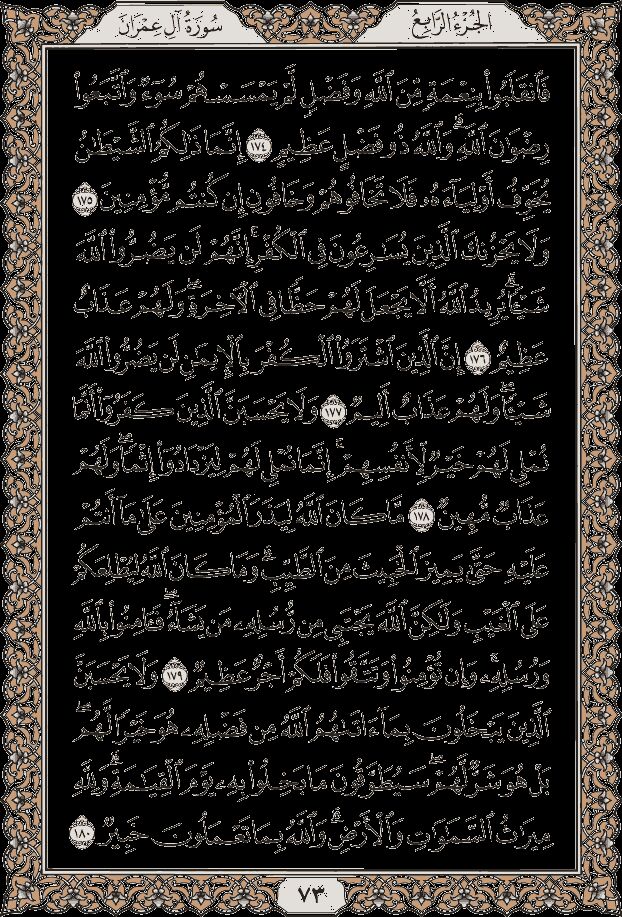 الجُزْءُ الرَّابِعُ
سُورَةُ آلِ عِمْرَانَ
فَٱنقَلَبُوا۟ بِنِعْمَةٍ مِّنَ ٱللَّهِ وَفَضْلٍ لَّمْ يَمْسَسْهُمْ سُوٓءٌ وَٱتَّبَعُوا۟
رِضْوَٰنَ ٱللَّهِ ۗ وَٱللَّهُ ذُو فَضْلٍ عَظِيمٍ ١٧٤ إِنَّمَا ذَٰلِكُمُ ٱلشَّيْطَٰنُ
يُخَوِّفُ أَوْلِيَآءَهُۥ فَلَا تَخَافُوهُمْ وَخَافُونِ إِن كُنتُم مُّؤْمِنِينَ ١٧٥
وَلَا يَحْزُنكَ ٱلَّذِينَ يُسَٰرِعُونَ فِى ٱلْكُفْرِ ۚ إِنَّهُمْ لَن يَضُرُّوا۟ ٱللَّهَ
شَيْـًٔا ۗ يُرِيدُ ٱللَّهُ أَلَّا يَجْعَلَ لَهُمْ حَظًّا فِى ٱلْـَٔاخِرَةِ ۖ وَلَهُمْ عَذَابٌ
عَظِيمٌ ١٧٦ إِنَّ ٱلَّذِينَ ٱشْتَرَوُا۟ ٱلْكُفْرَ بِٱلْإِيمَٰنِ لَن يَضُرُّوا۟ ٱللَّهَ
شَيْـًٔا ۖ وَلَهُمْ عَذَابٌ أَلِيمٌ ١٧٧ وَلَا يَحْسَبَنَّ ٱلَّذِينَ كَفَرُوٓا۟ أَنَّمَا
نُمْلِى لَهُمْ خَيْرٌ لِّأَنفُسِهِمْ ۚ إِنَّمَا نُمْلِى لَهُمْ لِيَزْدَادُوٓا۟ إِثْمًا ۖ وَلَهُمْ
عَذَابٌ مُّهِينٌ ١٧٨ مَّا كَانَ ٱللَّهُ لِيَذَرَ ٱلْمُؤْمِنِينَ عَلَىٰ مَآ أَنتُمْ
عَلَيْهِ حَتَّىٰ يَمِيزَ ٱلْخَبِيثَ مِنَ ٱلطَّيِّبِ ۗ وَمَا كَانَ ٱللَّهُ لِيُطْلِعَكُمْ
عَلَى ٱلْغَيْبِ وَلَٰكِنَّ ٱللَّهَ يَجْتَبِى مِن رُّسُلِهِۦ مَن يَشَآءُ ۖ فَـَٔامِنُوا۟ بِٱللَّهِ
وَرُسُلِهِۦ ۚ وَإِن تُؤْمِنُوا۟ وَتَتَّقُوا۟ فَلَكُمْ أَجْرٌ عَظِيمٌ ١٧٩ وَلَا يَحْسَبَنَّ
ٱلَّذِينَ يَبْخَلُونَ بِمَآ ءَاتَىٰهُمُ ٱللَّهُ مِن فَضْلِهِۦ هُوَ خَيْرًا لَّهُم ۖ
بَلْ هُوَ شَرٌّ لَّهُمْ ۖ سَيُطَوَّقُونَ مَا بَخِلُوا۟ بِهِۦ يَوْمَ ٱلْقِيَٰمَةِ ۗ وَلِلَّهِ
مِيرَٰثُ ٱلسَّمَٰوَٰتِ وَٱلْأَرْضِ ۗ وَٱللَّهُ بِمَا تَعْمَلُونَ خَبِيرٌ ١٨٠
٧٣